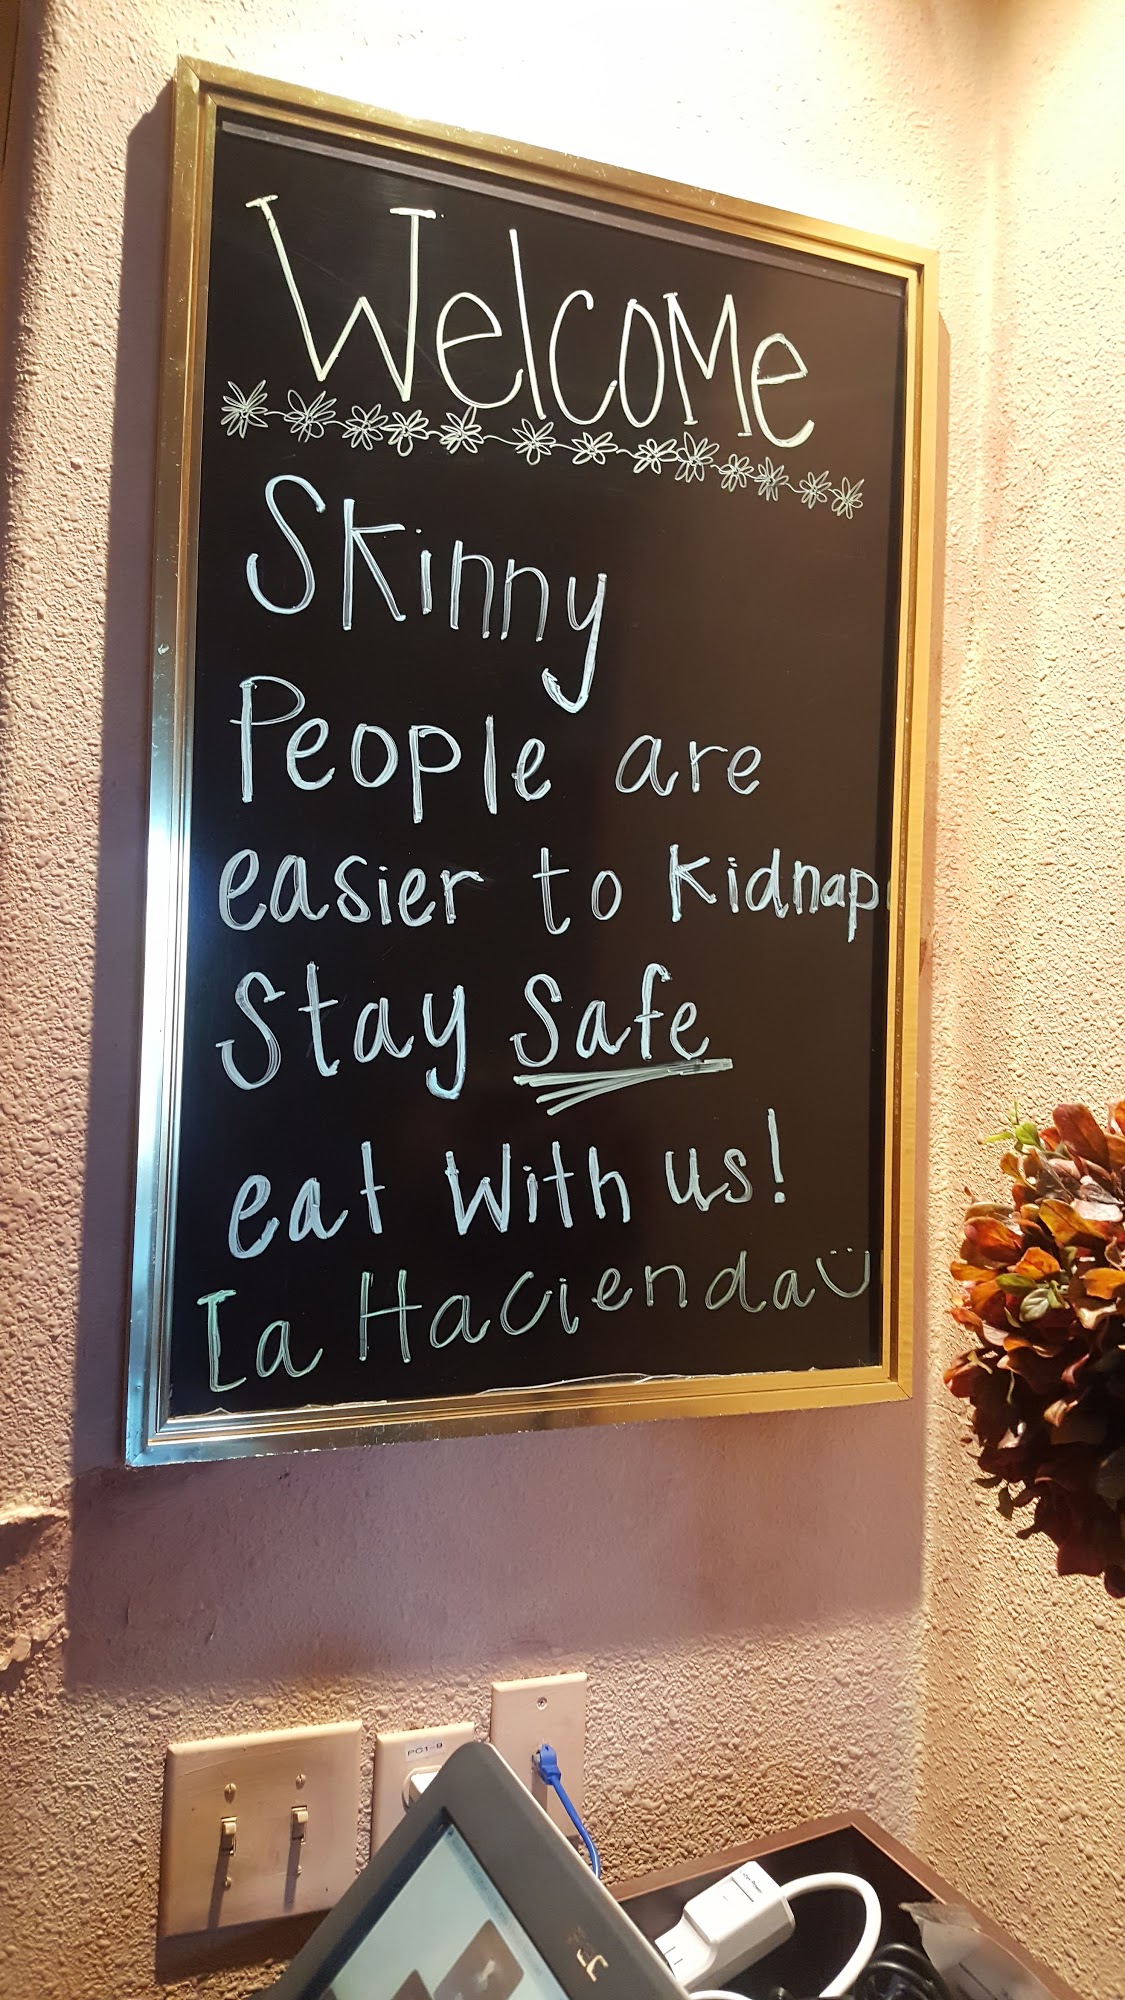 Welcome
Skinny
People are
easier to kidnap
Stay Safe
eat with us!
La Hacienda
PC1-9